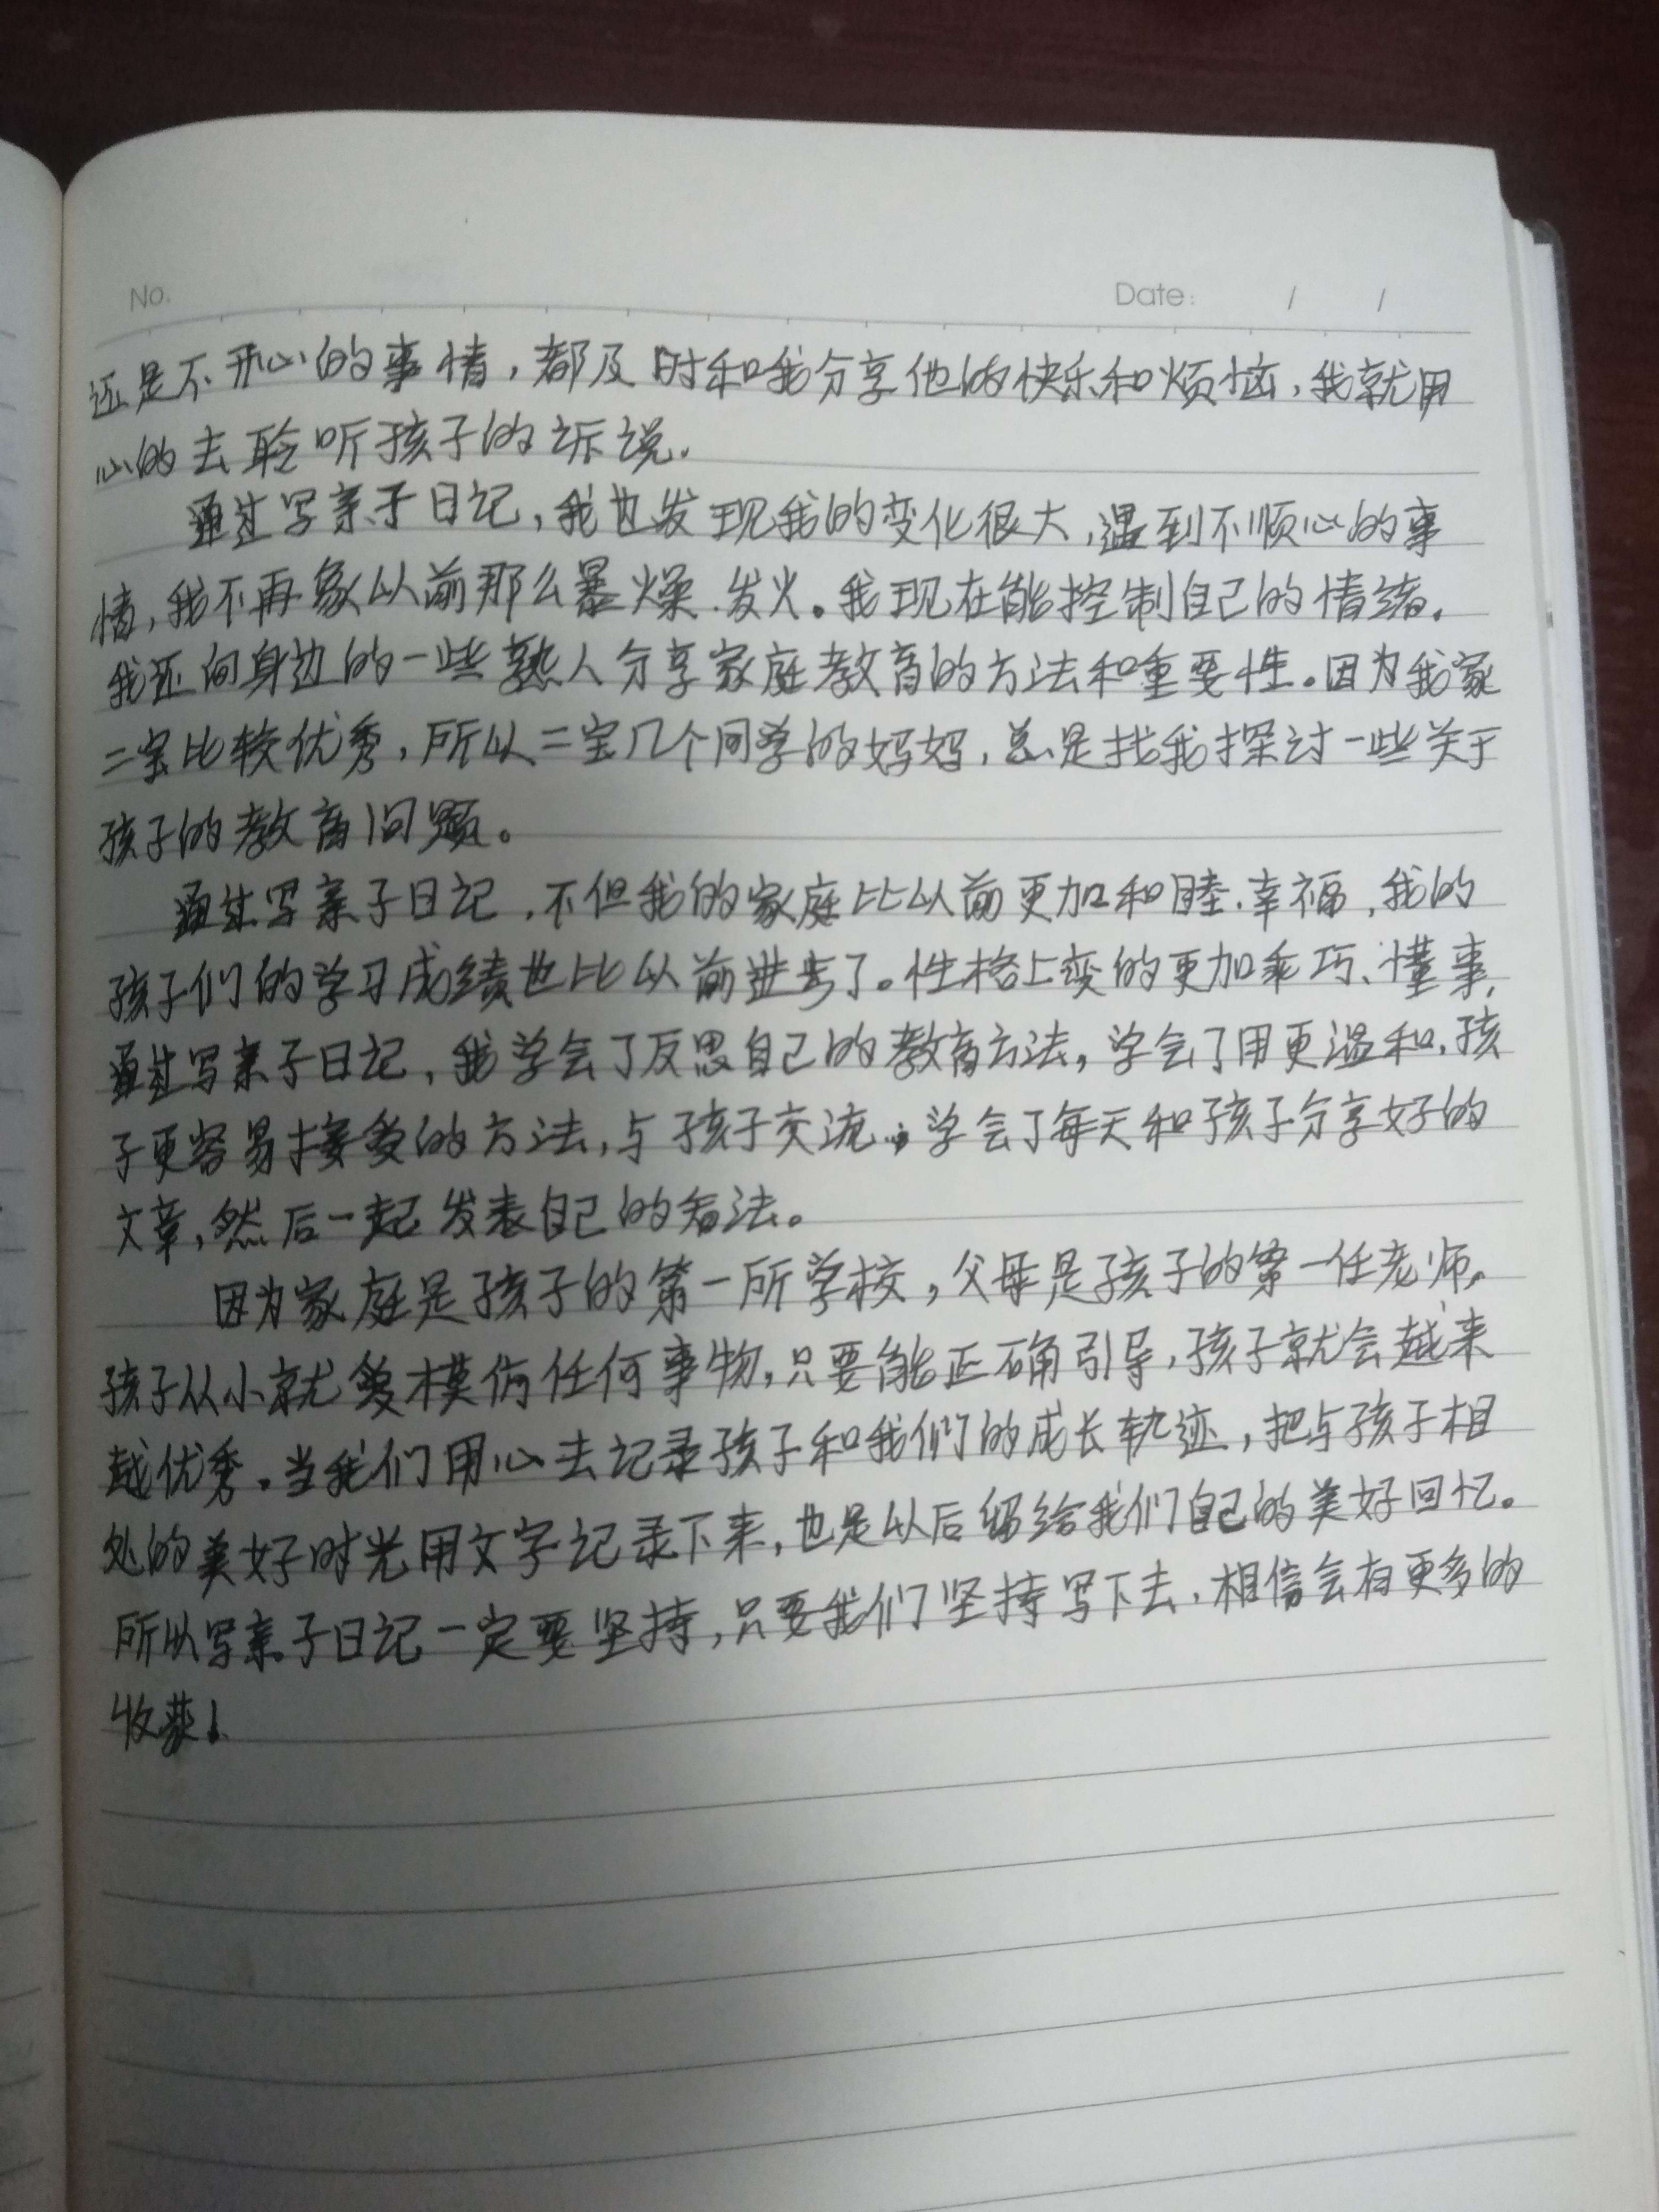 No.
Date: / /
还是不开心的事情，都及时和我分享他的快乐和烦恼，我就用
心的去聆听孩子的诉说.
通过写亲子日记，我也发现我的变化很大，遇到不顺心的事
情，我不再象以前那么暴燥.发火。我现在能控制自己的情绪.
我还向身边的一些熟人分享家庭教育的方法和重要性。因为我家
二宝比较优秀，所以二宝几个同学的妈妈，总是找我探讨一些关于
孩子的教育问题。
通过写亲子日记，不但我的家庭比以前更加和睦.幸福，我的
孩子们的学习成绩也比以前进步了。性格上变的更加乖巧、懂事，
通过写亲子日记，我学会了反思自己的教育方法，学会了用更温和，孩
子更容易接受的方法，与孩子交流，学会了每天和孩子分享好的
文章，然后一起发表自己的看法。
因为家庭是孩子的第一所学校，父母是孩子的第一任老师。
孩子从小就爱模仿任何事物，只要能正确引导，孩子就会越来
越优秀。当我们用心去记录孩子和我们的成长轨迹，把与孩子相
处的美好时光用文字记录下来，也是以后留给我们自己的美好回忆。
所以写亲子日记一定要坚持，只要我们坚持写下去，相信会有更多的
收获！